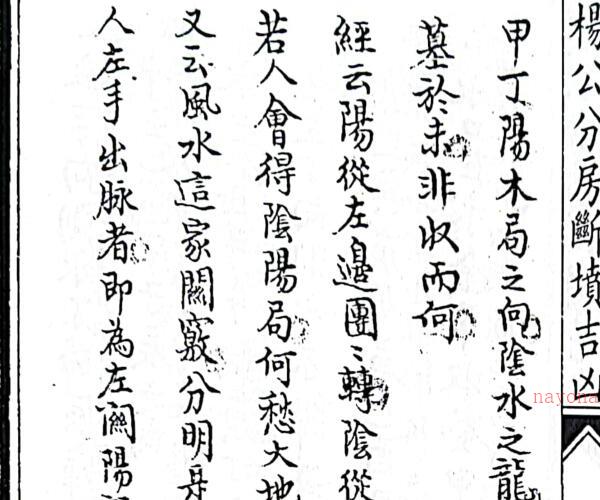 楊公分房斷墳吉凶
甲丁陽木局之向陰水之龍
墓於未非收而何
經云陽從左邊團〻轉陰從
若人會得陰陽局何愁大地
又云風水這家關竅分明是
人左手出脉者即為左關陽
nayona